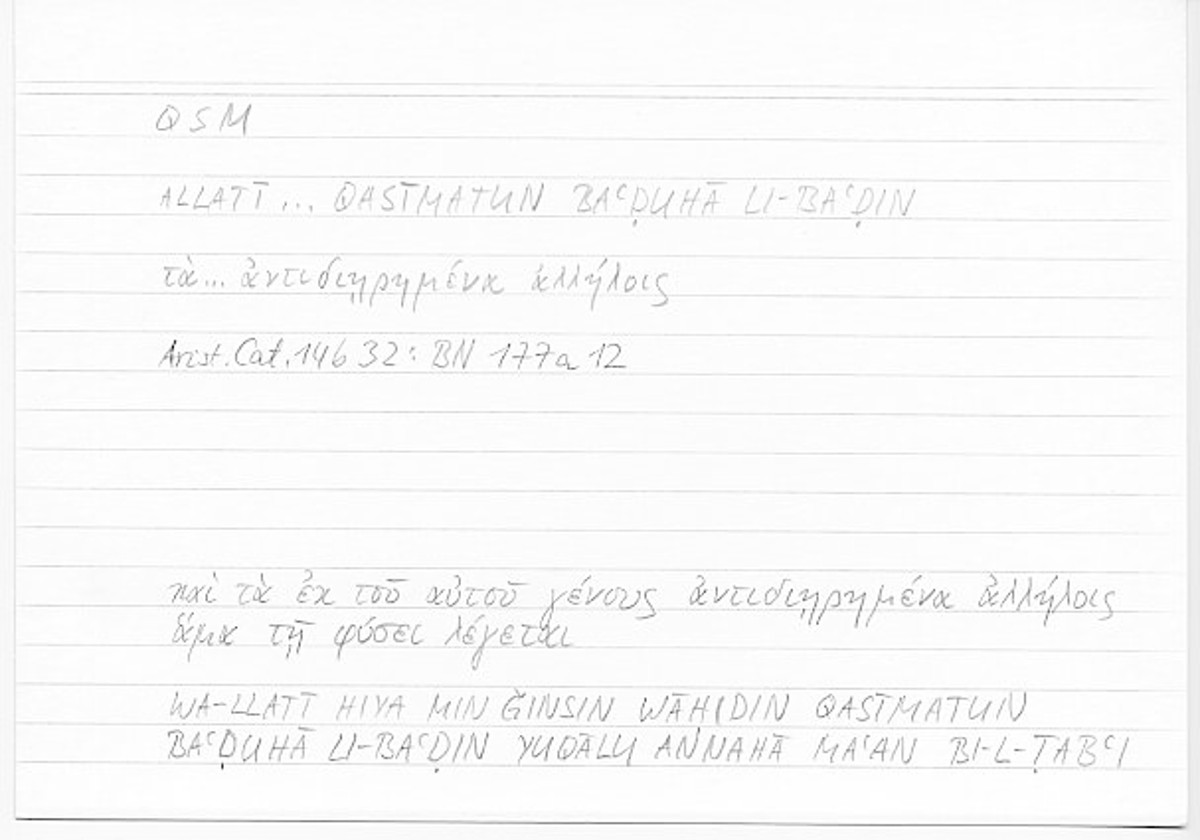 QSM
ALLATĪ ... QASĪMATUN BAʿḌUHĀ LI-BAʿḌIN
τὰ... ἀντιδιῃρημένα ἀλλήλοις
Arist. Cat. 14b 32: BN 177a 12
καὶ τὰ ἐκ τοῦ αὐτοῦ γένους ἀντιδιῃρημένα ἀλλήλοις
ἅμα τῇ φύσει λέγεται
WA-LLATĪ HIYA MIN ǦINSIN WĀḤIDIN QASĪMATUN
BAʿḌUHĀ LI-BAʿḌIN YUQĀLU ANNAHĀ MAʿAN BI-L-ṬABʿI